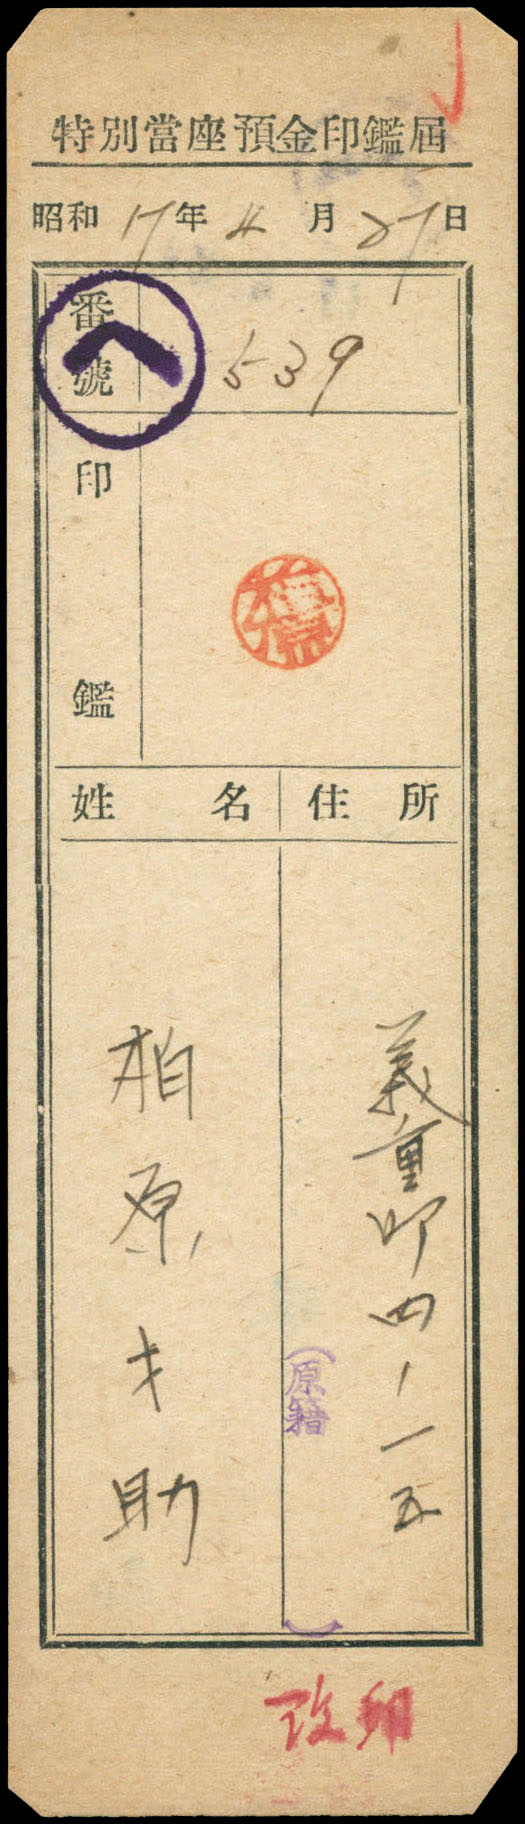 特別當座預金印鑑屆
昭和 17 年 4 月 27 日
番號
539
印鑑
姓名
住所
義重町四ノ一五
(原籍 )
柏原才助
改印